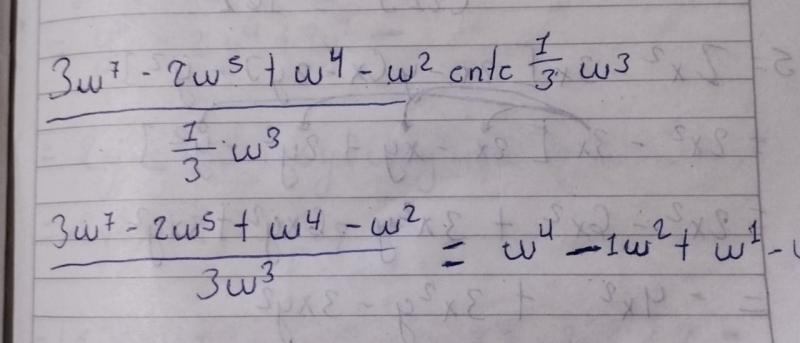 3w⁷ - 2w⁵ + w⁴ - w² entc 1/3 w³
1/3 · w³
3w⁷ - 2w⁵ + w⁴ - w² = w⁴ - 1w² + w¹ -
3w³